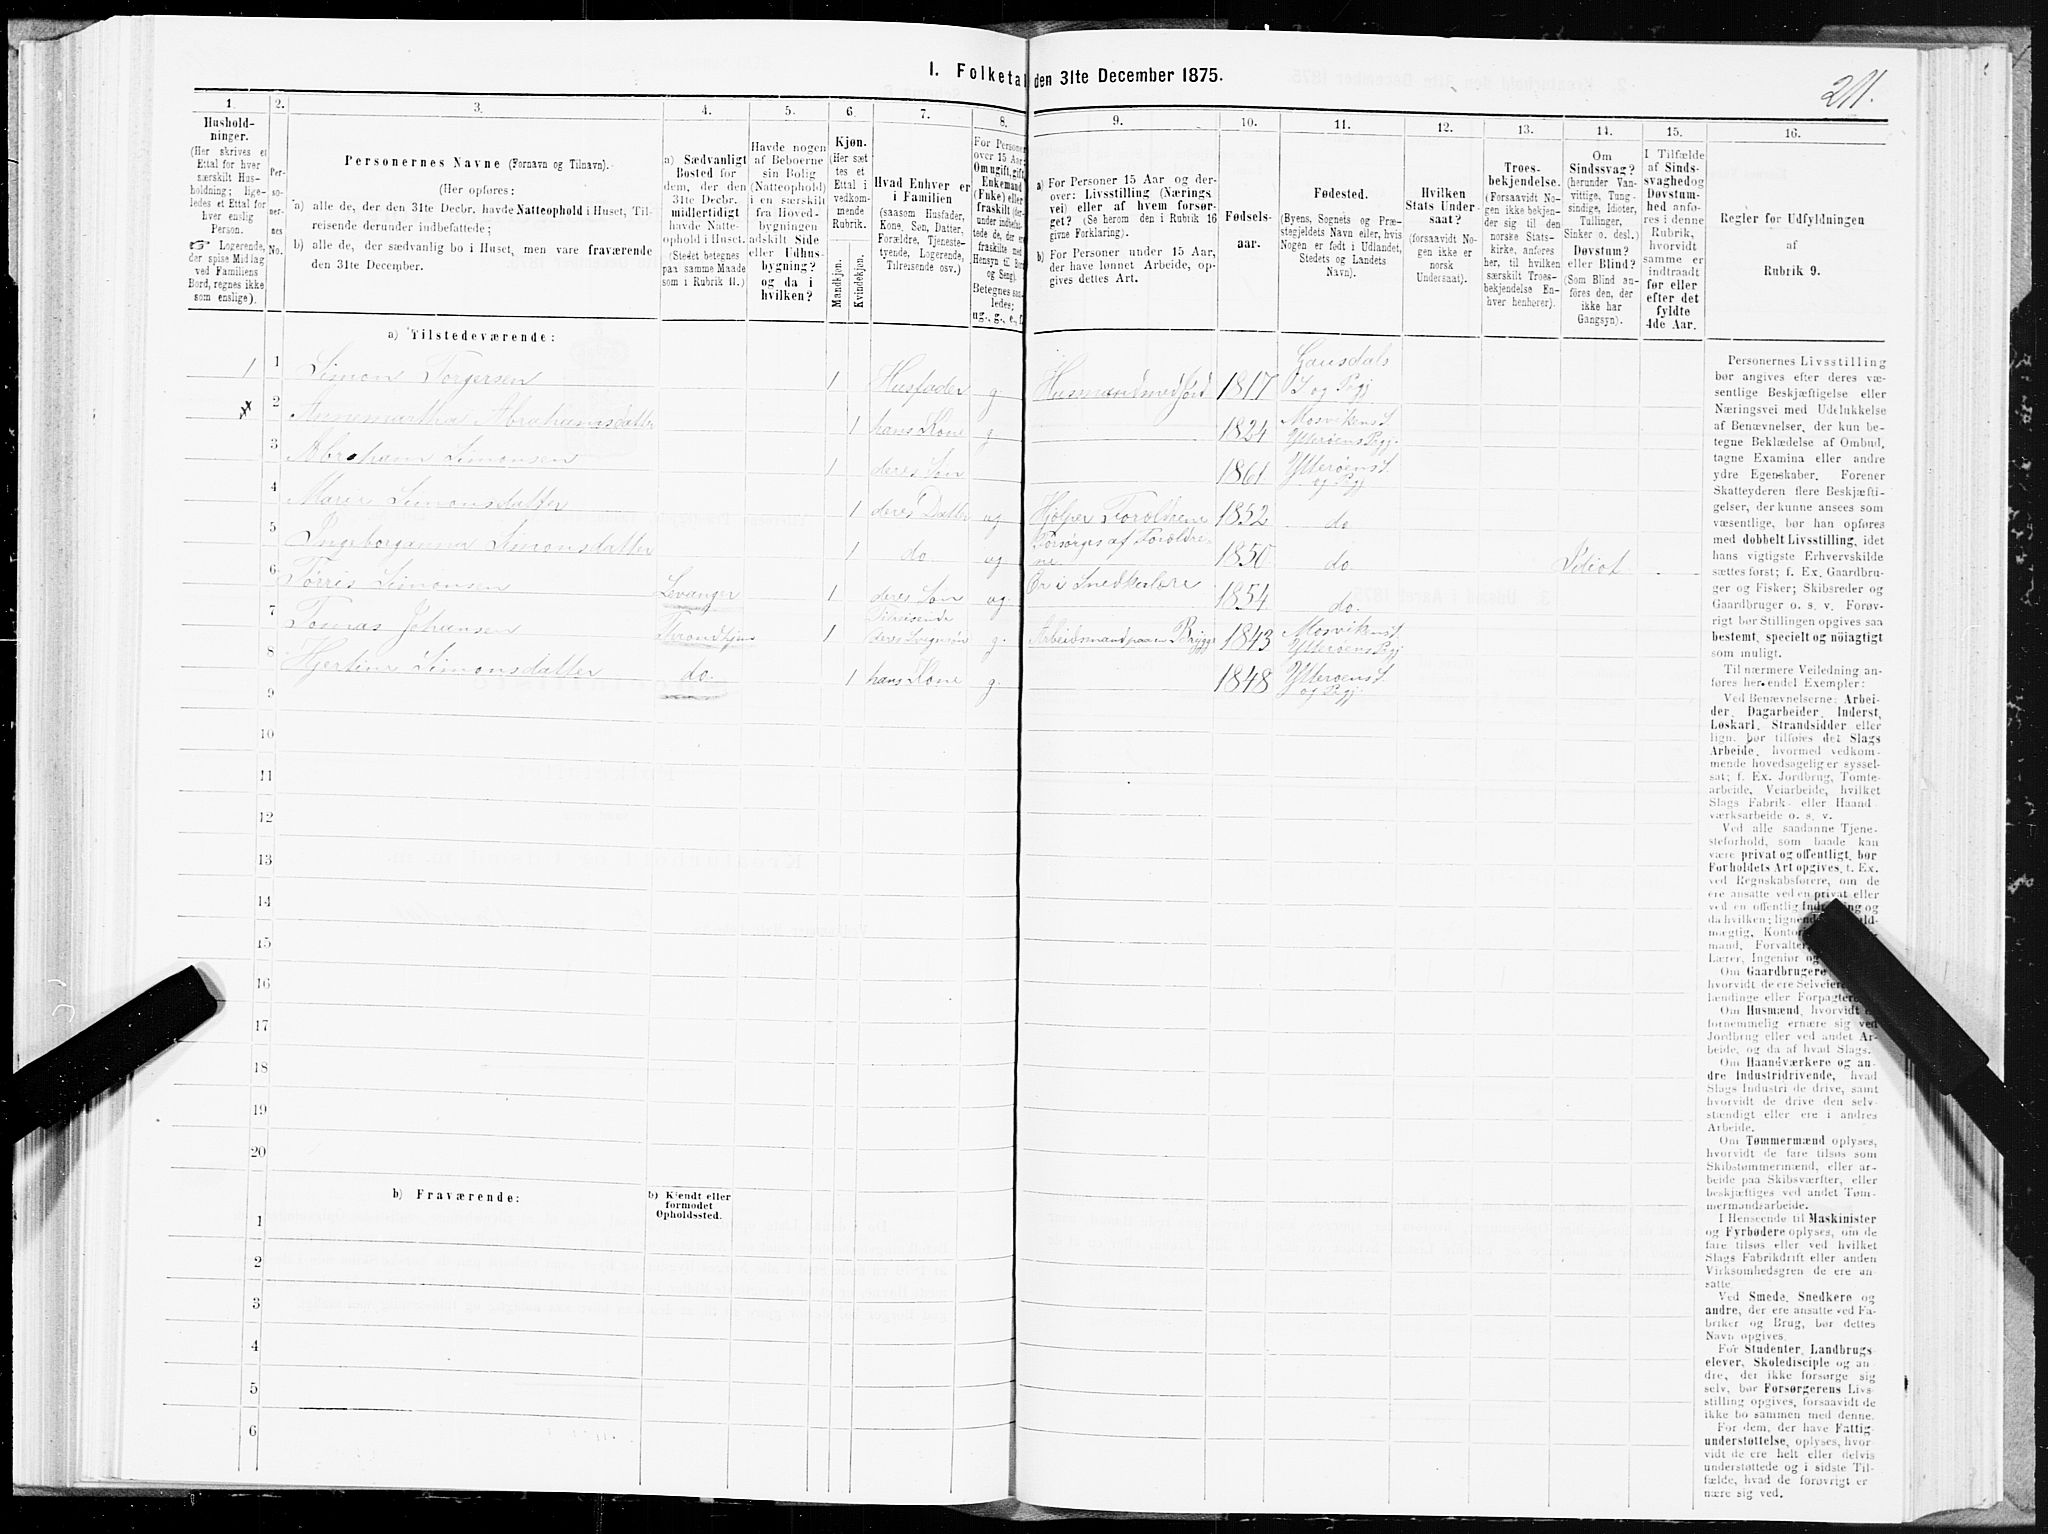 I. Folketal den 31te December 1875.
211.
1.
2.
3.
4.
5.
6.
7.
8.
9.
10.
11.
12.
13.
14.
15.
16.
Husholdninger.
(Her skrives et
Ettal for hver
særskilt Husholdning; ligeledes et Ettal for
hver enslig
Person.
☞ Logerende,
der spise Middag
ved Familiens
Bord, regnes ikke
som enslige).
Personernes No.
Personernes Navne (Fornavn og Tilnavn).
(Her opføres:
a) alle de, der den 31te Decbr. havde Natteophold i Huset, Tilreisende derunder indbefattede;
b) alle de, der sædvanlig bo i Huset, men vare fraværende
den 31te December.
a) Sædvanligt
Bosted for
dem, der den
31te Decbr.
midlertidigt
havde Natteophold i Huset.
(Stedet betegnes
paa samme Maade
som i Rubrik 11.)
Havde nogen
af Beboerne
sin Bolig
(Natteophold)
i en særskilt
fra Hovedbygningen
adskilt Side
eller Udhusbygning?
og da i
hvilken?
Kjøn.
(Her sættes et
Ettal i
vedkommende
Rubrik.
Mandkjøn.
Kvindekjøn.
Hvad Enhver er
i Familien
(saasom Husfader,
Kone, Søn, Datter,
Forældre, Tjenestetyende, Logerende,
Tilreisende osv.)
For Personer
over 15 Aar:
Om ugift, gift,
Enkemand
(Enke) eller
fraskilt
Betegnes saaledes:
ug., g., e., f.
a) For Personer 15 Aar og derover: Livsstilling (Næringsvei) eller af hvem forsørget? (Se herom den i Rubrik 16
givne Forklaring).
b) For Personer under 15 Aar,
der have lønnet Arbeide, opgives dettes Art.
Fødselsaar.
Fødested.
(Byens, Sognets og Præstegjeldets Navn eller, hvis
Nogen er født i Udlandet,
Stedets og Landets
Navn).
Hvilken
Stats Undersaat?
(forsaavidt Nogen ikke er
norsk
Undersaat).
Troesbekjendelse.
(Forsaavidt Nogen ikke bekjender sig til den
norske Statskirke, anføres
her, til hvilken
særskilt Troesbekjendelse Enhver henhører).
Om
Sindssvag?
(herunder Vanvittige, Tungsindige, Idioter,
Tullinger,
Sinker o. desl.)
Døvstum?
eller Blind?
(Som Blind anføres den, der
ikke har
Gangsyn).
I Tilfælde
af Sindssvaghed og
Døvstumhed anføres i denne
Rubrik,
hvorvidt
samme er
indtraadt
før eller
efter det
fyldte
4de Aar.
Regler for Udfyldningen
af
Rubrik 9.
a) Tilstedeværende:
1 1 Simon Torgersen 1 Husfader g Husmand med Jord 1817 Gausdals S og Pgj
2 Annemartha Abrahamsdatter 1 hans Kone g 1824 Mosvikens S. Ytterøens Pgj.
3 Abraham Simonsen 1 deres Søn 1861 Ytterøens S. og Pgj
4 Maria Simonsdatter 1 deres Datter ug Hjelper Forældrene 1852 do
5 Ingeborganna Simonsdatter 1 do ug Forsørges af Forældrene 1850 do Idiot
6 Tørris Simonsen Levanger 1 deres Søn ug. Er i Snedkerlære 1854 do.
7 Tomas Johansen Throndhjem 1 Tilreisende deres Svigersøn g. Arbeidsmand paa en Brygge 1843 Mosvikens S. Ytterøens Pgj
8 Hjertine Simonsdatter do. 1 hans Kone g. 1848 Ytterøens S. og Pgj.
9
10
11
12
13
14
15
16
17
18
19
20
b) Fraværende:
b) Kjendt eller
formodet
Opholdssted.
1
2
3
4
5
6
Personernes Livsstilling
bør angives efter deres væsentlige Beskjæftigelse eller
Næringsvei med Udelukkelse
af Benævnelser, der kun betegne Beklædelse af Ombud,
tagne Examina eller andre
ydre Egenskaber. Forener
Skatteyderen flere Beskjæftigelser, der kunne ansees som
væsentlige, bør han opføres
med dobbelt Livsstilling, idet
hans vigtigste Erhvervskilde
sættes først; f. Ex. Gaardbruger og Fisker; Skibsreder og
Gaardbruger o. s. v. Forøvrigt bør Stillingen opgives saa
bestemt, specielt og nøiagtigt
som muligt.
Til nærmere Veiledning anføres her endel Exempler:
Ved Benævnelserne: Arbeider, Dagarbeider, Inderst,
Løskarl, Strandsidder eller
lign. bør tilføies det Slags
Arbeide, hvormed vedkommende hovedsagelig er sysselsat; f. Ex. Jordbrug, Tomtearbeide, Veiarbeide, hvilket
Slags Fabrik- eller Haandværksarbeide o. s. v.
Ved alle saadanne Tjenesteforhold, som baade kan
være privat og offentligt, bør
Forholdets Art opgives, f. Ex.
ved Regnskabsførere, om de
ere ansatte ved en privat eller
ved en offentlig Indretning og
da hvilken;
Om Gaardbrugere
hvorvidt de ere Selveiere,
Lændinge eller Forpagtere.
Om Husmænd, hvorvidt
fornemmelig ernære sig ved
Jordbrug eller ved andet Arbeide, og da af hvad Slags.
Om Haandværkere og andre Industridrivende, hvad
Slags Industri de drive, samt
hvorvidt de drive den selvstændigt eller ere i andres
Arbeide.
Om Tømmermænd oplyses,
hvorvidt de fare tilsøs som
Skibstømmermænd, eller arbeide paa Skibsværfter, eller
beskjæftiges ved andet Tømmermandsarbeide.
I Henseende til Maskinister
og Fyrbødere oplyses, om de
fare tilsøs eller ved hvilket
Slags Fabrikdrift eller anden
Virksomhedsgren de ere ansatte.
Ved Smede, Snedkere og
andre, der ere ansatte ved Fabriker og Brug, bør dettes
Navn opgives.
For Studenter, Landbrugselever, Skoledisciple og andre, der ikke forsørge sig
selv, bør Forsørgerens Livsstilling opgives, forsaavidt de
ikke bo sammen med denne.
For dem, der have Fattigunderstøttelse, oplyses, hvorvidt de ere helt eller delvis
understøttede og i sidste Tilfælde, hvad de forøvrigt er
nære sig ved.